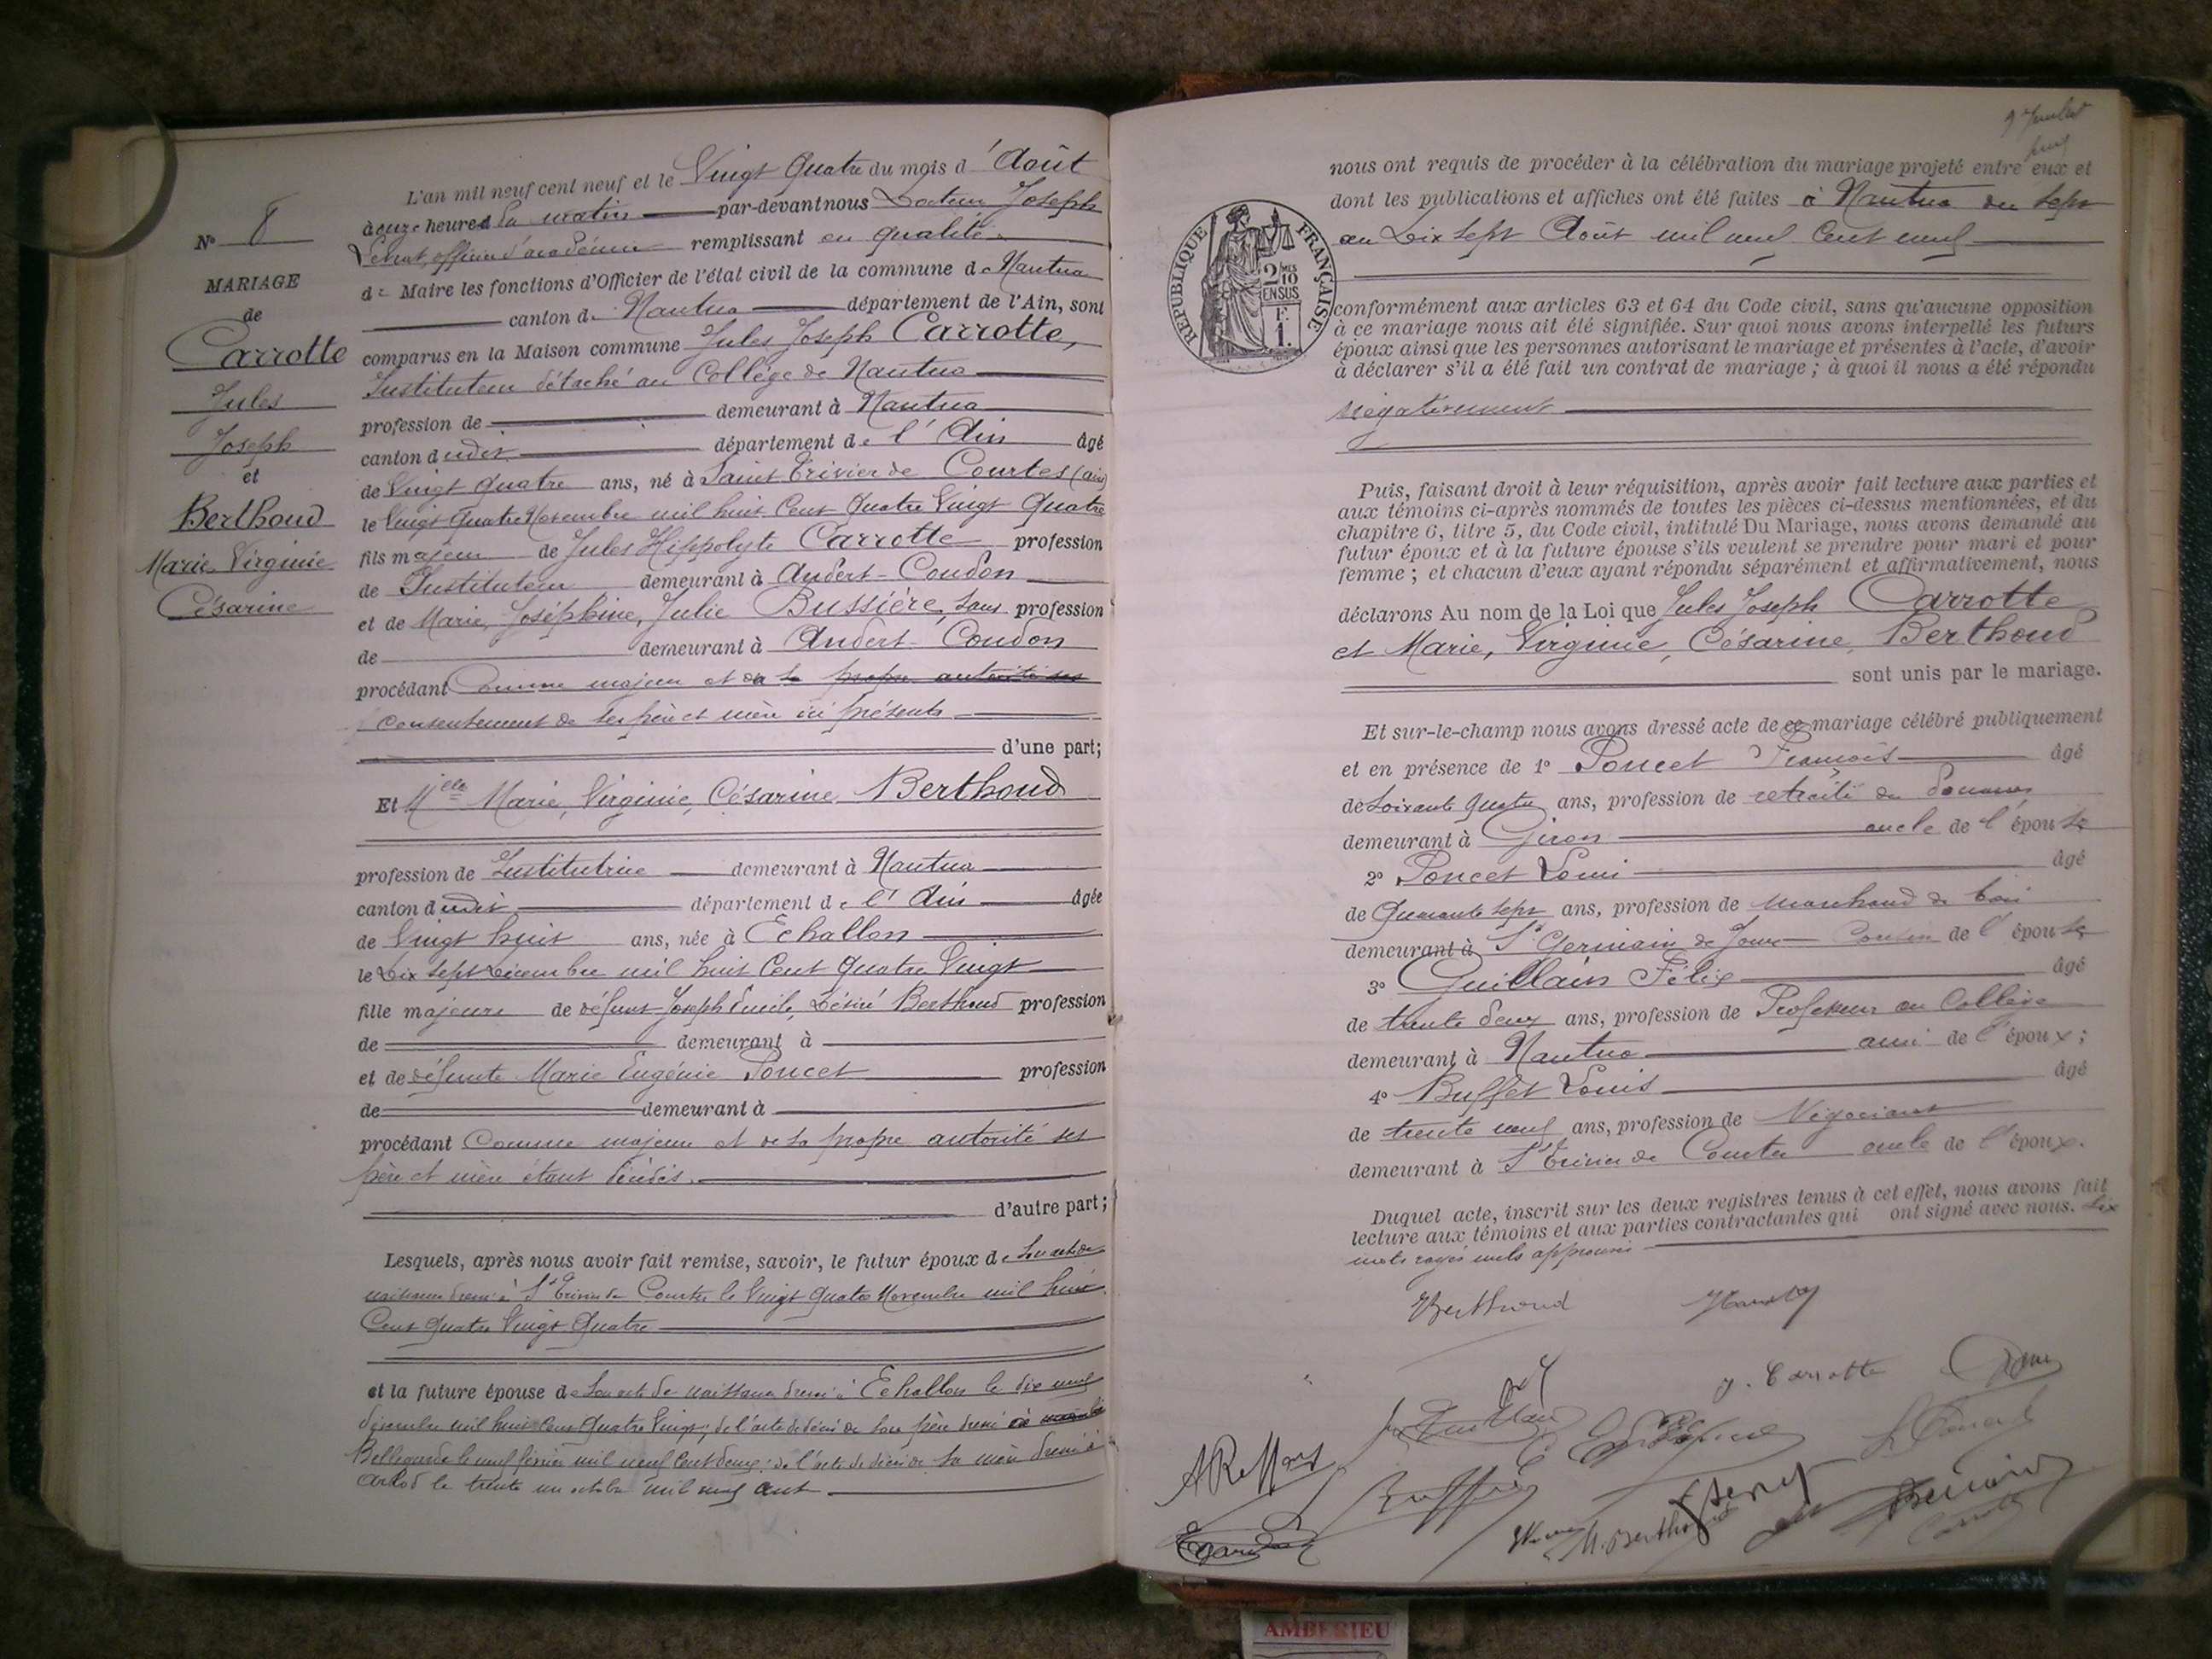 L'an mil neuf cent neuf et le Vingt Quatre du mois d'Août
à onze heures du matin par-devant nous Docteur Joseph
officier d'académie remplissant en qualité
de Maire les fonctions d'Officier de l'état civil de la commune de Nantua
canton de Nantua département de l'Ain, sont
comparus en la Maison commune Jules Joseph Carrotte,
Instituteur détaché au Collège de Nantua
profession de demeurant à Nantua
canton dudit département de l'Ain âgé
de Vingt quatre ans, né à Saint Trivier de Courtes (ain)
le Vingt Quatre Novembre mil huit Cent Quatre Vingt Quatre
fils majeur de Jules Hippolyte Carrotte profession
de Instituteur demeurant à Andert-Condon
et de Marie, Joséphine, Julie Bussière, sans profession
de demeurant à Andert-Condon
procédant Comme majeur et de sa propre autorité ses
consentement de ses père et mère ici présents
d'une part;
N° 8
MARIAGE
de
Carrotte
Jules
Joseph
et
Berthoud
Marie Virginie
Césarine
Et Melle Marie, Virginie, Césarine Berthoud
profession de Institutrice demeurant à Nantua
canton dudit département de l'Ain âgée
de Vingt huit ans, née à Echallon
le Dix sept Décembre mil huit Cent Quatre Vingt
fille majeure de défunt Joseph Emile, Désiré Berthoud profession
de demeurant à
et de défunte Marie Eugénie Poncet profession
de demeurant à
procédant Comme majeure et de sa propre autorité ses
père et mère étant décédés.
d'autre part;
Lesquels, après nous avoir fait remise, savoir, le futur époux de son acte de
naissance dressé à St Trivier de Courtes le Vingt Quatre Novembre mil huit
Cent Quatre Vingt Quatre
et la future épouse de son acte de naissance dressé à Echallon le dix neuf
décembre mil huit cent Quatre Vingt; de l'acte de décès de son père dressé à
Bellegarde le neuf février mil neuf cent deux; de l'acte de décès de sa mère dressé à
Arlod le trente un octobre mil neuf cent
9 Juillet
nous ont requis de procéder à la célébration du mariage projeté entre eux et
dont les publications et affiches ont été faites à Nantua du sept
au Dix sept Août mil neuf Cent neuf
RÉPUBLIQUE FRANÇAISE
2 MES
10
EN SUS
F.
1.
conformément aux articles 63 et 64 du Code civil, sans qu'aucune opposition
à ce mariage nous ait été signifiée. Sur quoi nous avons interpellé les futurs
époux ainsi que les personnes autorisant le mariage et présentes à l'acte, d'avoir
à déclarer s'il a été fait un contrat de mariage ; à quoi il nous a été répondu
négativement
Puis, faisant droit à leur réquisition, après avoir fait lecture aux parties et
aux témoins ci-après nommés de toutes les pièces ci-dessus mentionnées, et du
chapitre 6, titre 5, du Code civil, intitulé Du Mariage, nous avons demandé au
futur époux et à la future épouse s'ils veulent se prendre pour mari et pour
femme ; et chacun d'eux ayant répondu séparément et affirmativement, nous
déclarons Au nom de la Loi que Jules Joseph Carrotte
et Marie, Virginie, Césarine, Berthoud
sont unis par le mariage.
Et sur-le-champ nous avons dressé acte de ce mariage célébré publiquement
et en présence de 1° Poncet François âgé
de soixante quatre ans, profession de retraité des Douanes
demeurant à Giron oncle de l'épouse
2° Poncet Louis âgé
de Quarante sept ans, profession de marchand de bois
demeurant à St Germain de Joux Cousin de l'épouse
3° Guillain Félix âgé
de trente deux ans, profession de Professeur au Collège
demeurant à Nantua ami de l'époux;
4° Buffet Louis âgé
de trente neuf ans, profession de Négociant
demeurant à St Trivier de Courtes oncle de l'époux.
Duquel acte, inscrit sur les deux registres tenus à cet effet, nous avons fait
lecture aux témoins et aux parties contractantes qui ont signé avec nous. Six
mots rayés nuls approuvés
Berthoud
J. Carrotte
M. Berthoud
AMBERIEU